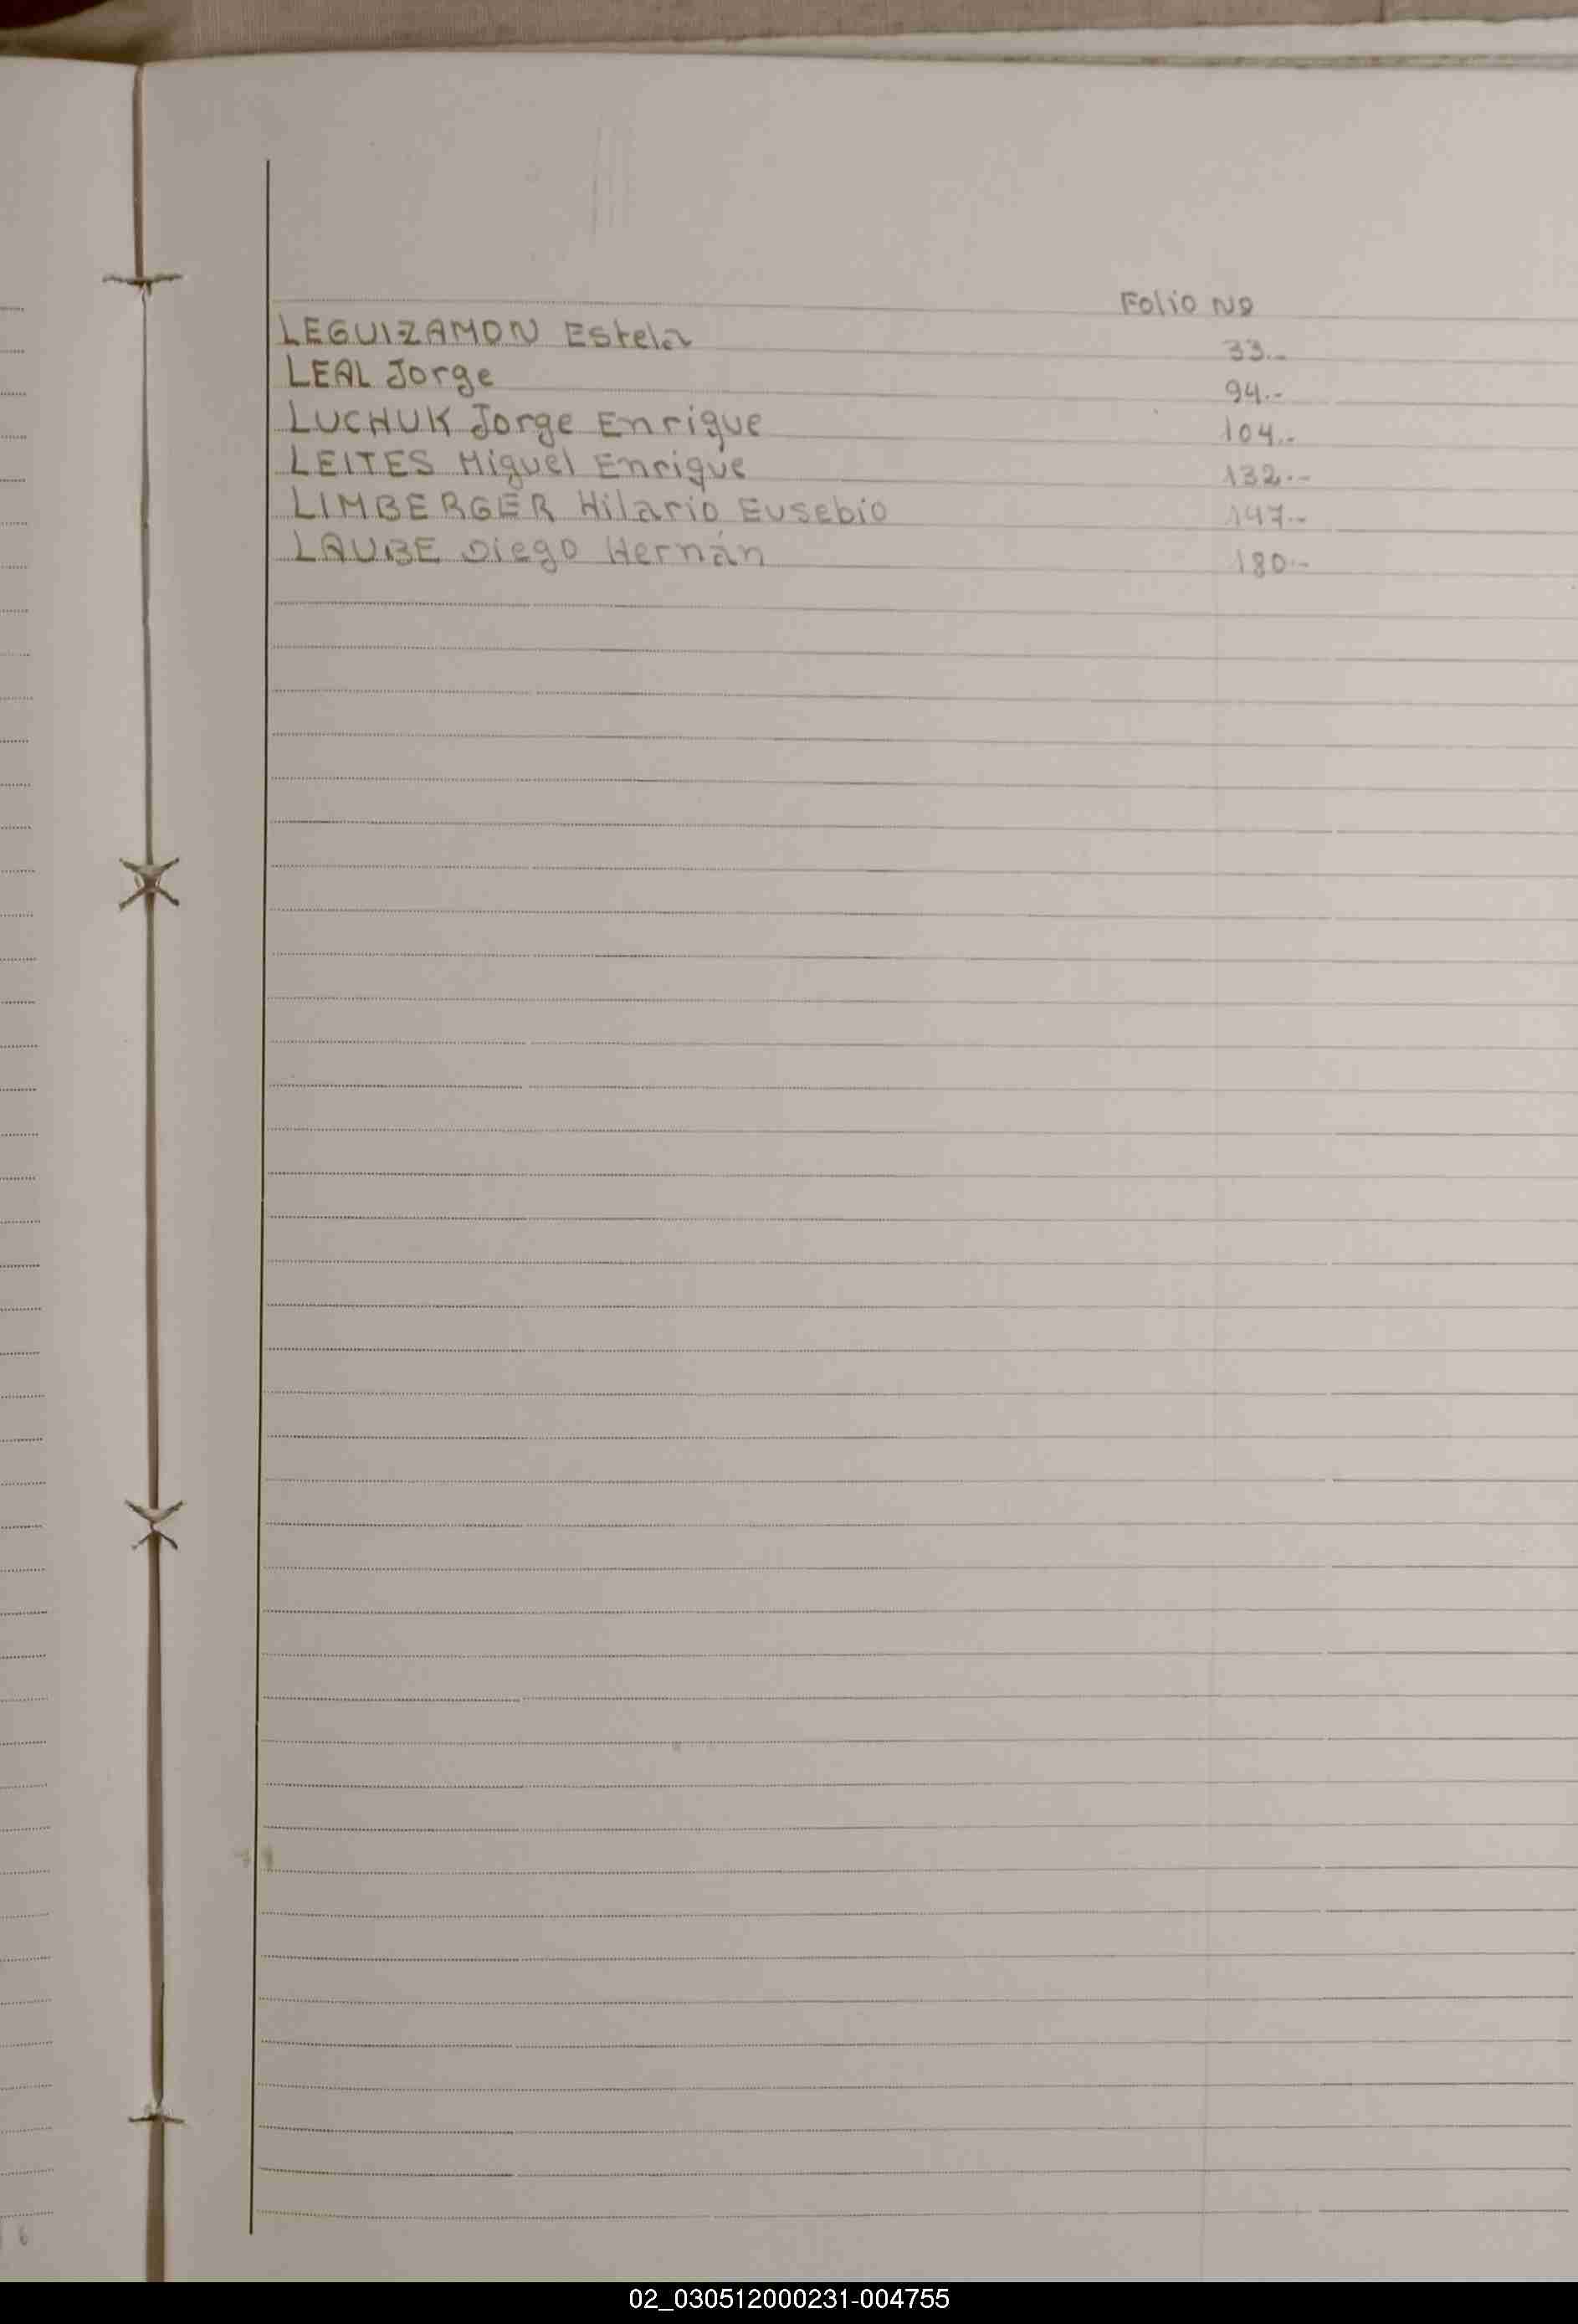 Folio Nº
LEGUIZAMON Estela 33.-
LEAL Jorge 94.-
LUCHUK Jorge Enrique 104.-
LEITES Miguel Enrique 132.-
LIMBERGER Hilario Eusebio 147.-
LAUBE Diego Hernán 180.-
02_030512000231-004755